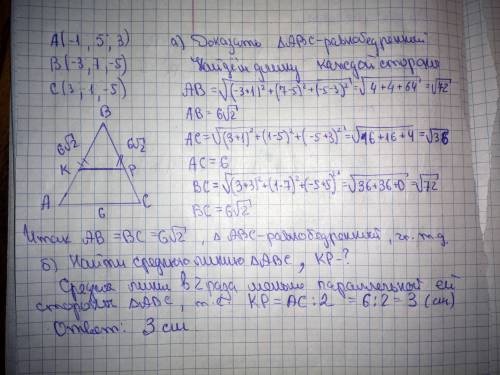 A(-1, 5, 3)
B(-3, 7, -5)
C(3, 1, -5)
а) Доказать ΔABC-равнобедренный
Найдём длину каждой стороны
AB = √((-3+1)²+(7-5)²+(-5-3)²) = √(4+4+64) = √72
AB = 6√2
AC = √((3+1)²+(1-5)²+(-5+3)²) = √(16+16+4) = √36
AC = 6
BC = √((3+3)²+(1-7)²+(-5+5)²) = √(36+36+0) = √72
BC = 6√2
B
6√2 6√2
K P
A C
6
Итак AB = BC = 6√2, ΔABC-равнобедренный, ч.т.д.
б) Найти среднюю линию ΔABC, KP-?
Средняя линия в 2 раза меньше параллельной ей
стороны ΔABC, т.е KP = AC : 2 = 6 : 2 = 3 (см)
Ответ: 3 см